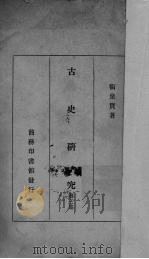 衞聚賢著
古史研究
商務印書館發行